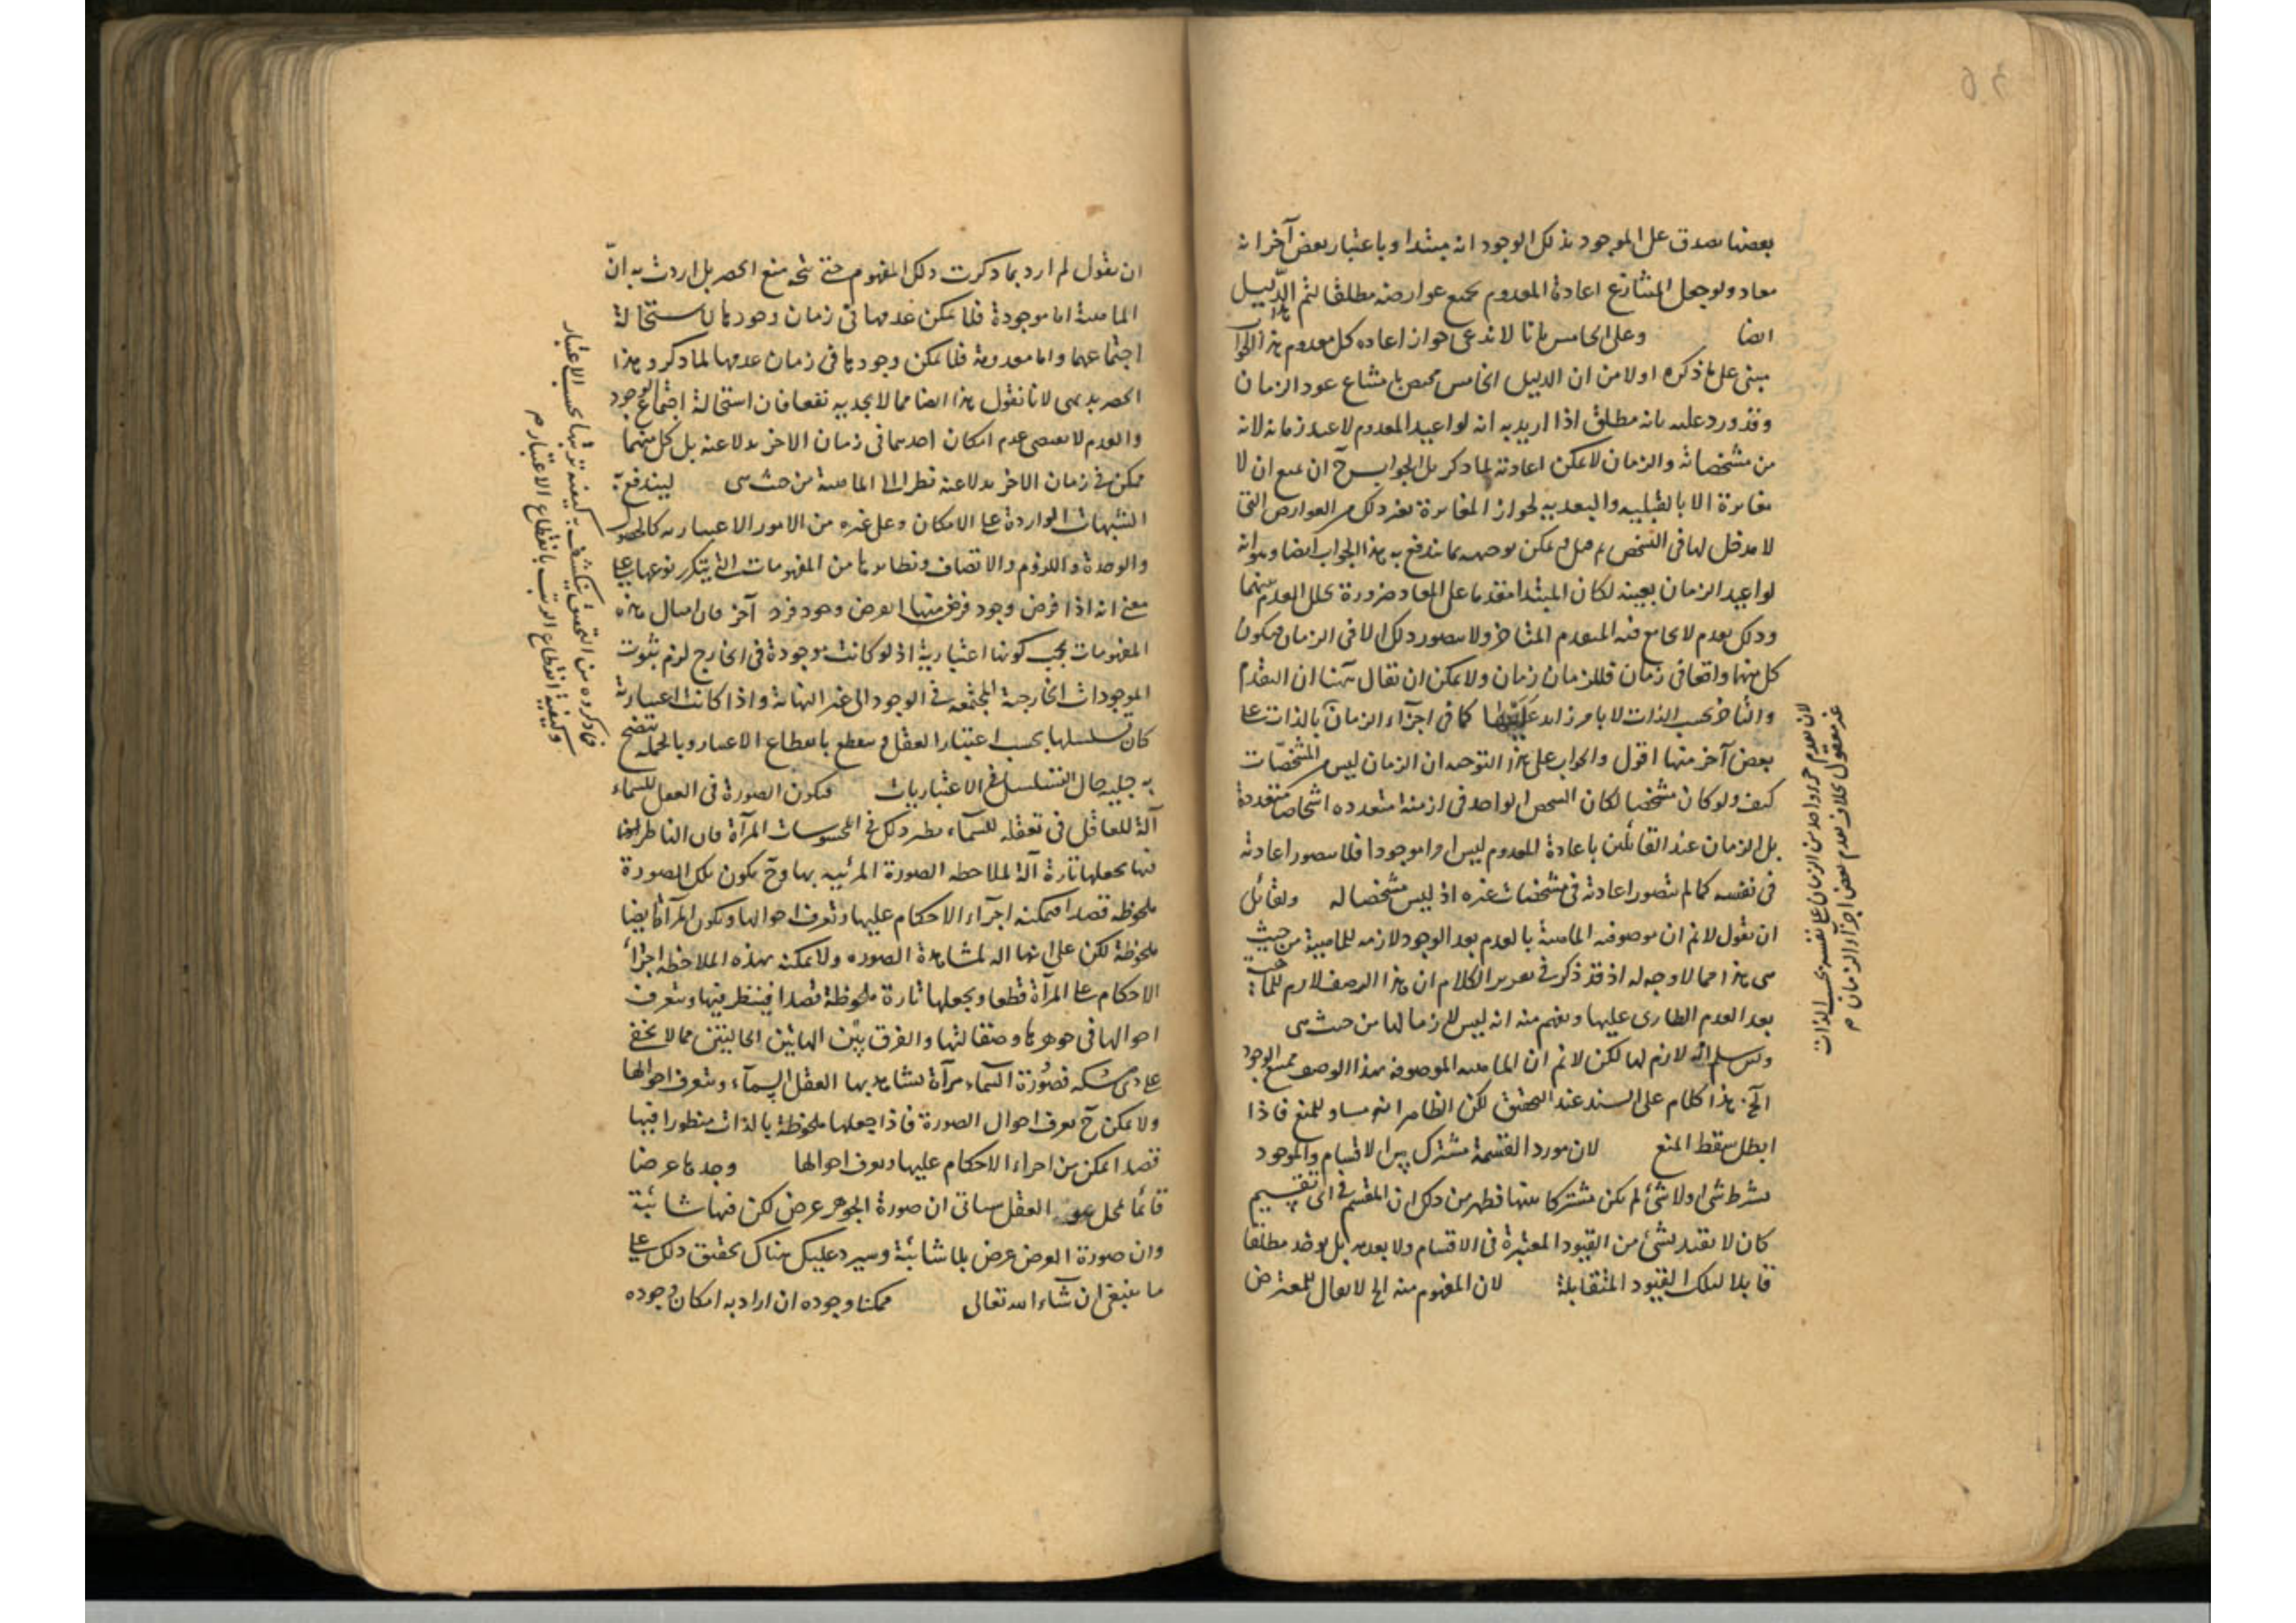 بعضها يصدق على الموجود بذلك الوجود انه مبتدا وباعتبار بعض آخر انه
معاد ولو جعل المتنازع اعادة المعدوم بجميع عوارضه مطلقا لتم الدليل
ايضا وعلى الخامس بانا لا ندعى جواز اعاده كل معدوم هذا الجواب
مبنى على ما ذكره اولا من ان الدليل الخامس مختص بامتناع عود الزمان
وقد ورد عليه بانه مطلق اذا اريد به انه لو اعيد المعدوم لاعيد زمانه لانه
من مشخصاته والزمان لا يمكن اعادته لما ذكر بل الجواب ح ان يمنع ان لا
مغايرة الا بالقبلية والبعدية لجواز المغايرة بغير ذلك من العوارض التى
لا مدخل لها فى التشخص يمكن توجيهه بما يندفع به هذا الجواب ايضا وهو انه
لو اعيد الزمان بعينه لكان المبتدا متقدما على المعاد ضرورة تخلل العدم بينهما
وذلك تقدم لا يجامع فيه المتقدم المتاخر ولا يتصور ذلك الا فى الزمان فيكون
كل منهما واقعا فى زمان فللزمان زمان ولا يمكن ان يقال ههنا ان التقدم
والتاخر بحسب الذات لا بامر زايد كما فى اجزآء الزمان بالذات على
بعض آخر منها اقول والجواب على هذا التوجيه ان الزمان ليس من المشخصات
كيف ولو كان مشخصا لكان الشخص الواحد فى ازمنة متعدده اشخاصا متعددة
بل الزمان عند القائلين باعادة المعدوم ليس امرا موجودا فلا يتصور اعادته
فى نفسه كما لم يتصور اعادته فى مشخصات غيره اذ ليس مشخصا له ولقائل
ان يقول لا نم ان موصوفية الماهية بالعدم بعد الوجود لازمه للماهية من حيث
هى هذا مما لا وجه له اذ قد ذكر فى تقرير الكلام ان هذا الوصف لازم للماهية
بعد العدم الطارى عليها ويفهم منه انه ليس لازما لها من حيث هى
ولئن سلم انه لازم لها لكن لا نم ان الماهيه الموصوفة بهذا الوصف ممتنع الوجود
الخ هذا كلام على السند عند التحقيق لكن الظاهر انه مساو للمنع فاذا
ابطل سقط المنع لان مورد القسمة مشترك بين الاقسام والموجود
بشرط شئ او لا شئ لم يكن مشتركا بينها فظهر من ذلك ان المقسم فى اى تقسيم
كان لا يقيد بشئ من القيود المعتبرة فى الاقسام ولا بعدمه بل يوخذ مطلقا
قابلا لتلك القيود المتقابلة لان المفهوم منه الخ لا يقال للمعترض
لان تقدم جزء واحد من الزمان على نفسه بحسب الذات
غير معقول بخلاف تقدم بعض اجزآء الزمان م
ان يقول لم ارد بما ذكرت ذلك المفهوم حتى يتجه منع الحصر بل اردت به انّ
الماهية اما موجودة فلا يمكن عدمها فى زمان وجودها لاستحالة
اجتماعهما واما معدومة فلا يمكن وجودها فى زمان عدمها لما ذكر وهذا
الحصر بديهى لانا نقول هذا ايضا مما لا يجديه نفعا فان استحالة اجتماع الوجود
والعدم لا يقتضى عدم امكان احدهما فى زمان الاخر بدلا عنه بل كل منهما
ممكن فى زمان الاخر بدلا عنه نظرا الى الماهية من حيث هى ليندفع
الشبهات الواردة على الامكان وعلى غيره من الامور الاعتباريه كالحصول
والوحدة واللزوم والاتصاف ونظايرها من المفهومات التى يتكرر نوعها على
معنى انه اذا فرض وجود فرد منها لفرض وجود فرد آخر فان امثال هذه
المفهومات يجب كونها اعتبارية اذ لو كانت موجودة فى الخارج لزم ثبوت
الموجودات الخارجية المجتمعة فى الوجود الى غير النهاية واذا كانت اعتبارية
كان تسلسلها بحسب اعتبار العقل فينقطع بانقطاع الاعتبار وبالجمله يتضح
به جلية حال التسلسل فى الاعتباريات فتكون الصورة فى العقل للسماء
آلة للعاقل فى تعقله للسمآء نظير ذلك فى المحسوسات المرآة فان الناظر
فيها يجعلها تارة آلة لملاحظه الصورة المرئيه بها وح يكون تلك الصورة
ملحوظه قصدا فيمكنه اجرآء الاحكام عليها وتعرف احوالها وتكون المرآة ايضا
ملحوظة لكن على انها آلة لمشاهدة الصوره ولا يمكنه بهذه الملاحظه اجرآء
الاحكام على المرآة قطعا ويجعلها تارة ملحوظة قصدا فينظر فيها ويتعرف
احوالها فى جوهرها وصقالتها والفرق بين هاتين الحالتين مما لا يخفى
على ذى مسكه فصورة السمآء مرآة يشاهد بها العقل السمآء ويتعرف احوالها
ولا يمكن ح تعرف احوال الصورة فاذا جعلها ملحوظة بالذات منظورا فيها
قصدا امكن من اجراء الاحكام عليها وتعرف احوالها وجدها عرضا
قائما بمحل هو العقل سياتى ان صورة الجوهر عرض لكن فيها شائبة
وان صورة العرض عرض بلا شائبة وسيرد عليك هناك تحقيق ذلك على
ما ينبغى ان شآء الله تعالى ممكنا وجوده ان اراد به امكان وجوده
فما ذكره من التحقيق ينكشف به كيفية ترتبها بحسب الاعتبار
وكيفية انقطاع الترتب بانقطاع الاعتبار م